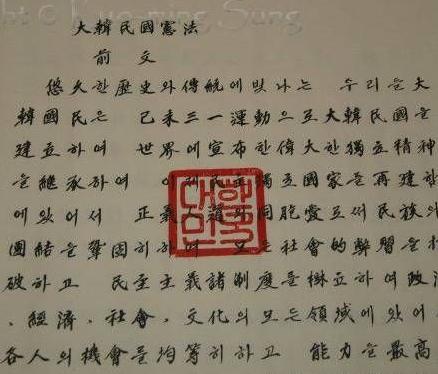 Sung
大韓民國憲法
前 文
悠久한 歷史와 傳統에 빛나는 우리들 大
韓國民은 己未三一運動으로 大韓民國을
建立하여 世界에 宣布한 偉大한 獨立精神
을 繼承하여 이제 民主獨立國家를 再建함
에 있어서 正義人道와 同胞愛로써 民族의
團結을 鞏固히하며 모든 社會的 弊習을 打
破하고 民主主義諸制度를 樹立하여 政治
、經濟、社會、文化의 모든 領域에 있어
各人의 機會를 均等히하고 能力을 最高
대한
민국